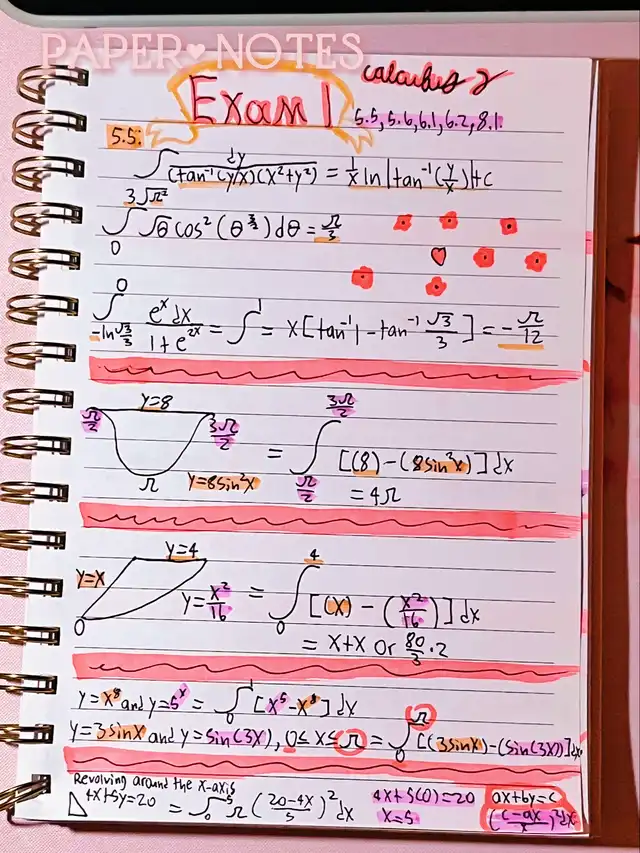 PAPER♥NOTES
calculus 2
Exam 1
5.5, 5.6, 6.1, 6.2, 8.1
5.5:
∫ dy / (tan⁻¹(y/x)(x²+y²)) = 1/x ln|tan⁻¹(y/x)|+c
∫₀^(3√π²) √θ cos²(θ^(3/2)) dθ = π/3
∫_(-ln √3/3)^0 eˣdx / 1+e²ˣ = ∫¹ = x[tan⁻¹1 - tan⁻¹ √3/3] = -π/12
y=8
π/2 3π/2 = ∫_(π/2)^(3π/2) [(8)-(8sin²x)]dx
π y=8sin²x = 4π
y=4
y=x y=x²/16 = ∫₀⁴ [(x)-(x²/16)]dx
0 = x+x or 80/3·2
y=x⁸ and y=5ˣ = ∫₀¹ [x⁵-x⁸]dx
y=3sinx and y=sin(3x), 0≤x≤π = ∫₀^π [(3sinx)-(sin(3x))]dx
Revolving around the x-axis
4x+5y=20 = ∫₀⁵ π(20-4x/5)²dx 4x+5(0)=20 ax+by=c
x=5 (c-ax/x)²dx